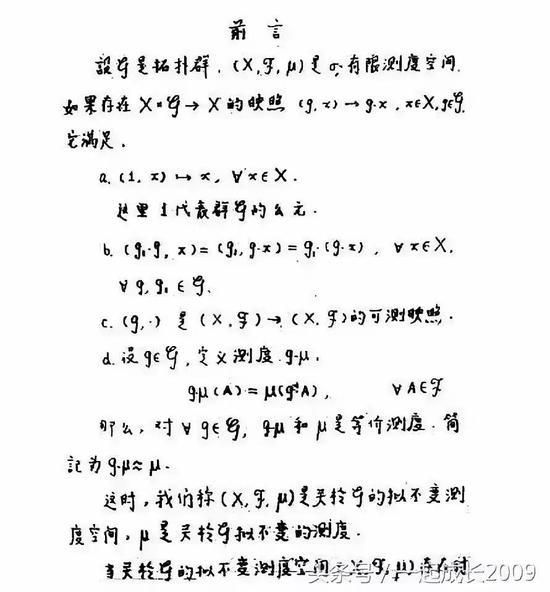 前言
設𝒢是拓扑群,(X,ℱ,μ)是σ-有限测度空间.
如果存在 X×𝒢→X 的映照 (g,x)→g·x, x∈X, g∈𝒢.
它满足.
a.(1,x)↦x, ∀x∈X.
这里1代表群𝒢的么元.
b.(g₁·g, x)=(g₁, g·x)=g₁·(g·x), ∀x∈X,
∀g, g₁∈𝒢.
c.(g,·)是(X,ℱ)→(X,ℱ)的可测映照.
d.设g∈𝒢,定义测度g·μ,
gμ(A)=μ(g⁻¹A), ∀A∈ℱ
那么,对∀g∈𝒢, gμ和μ是等价测度.简
記为g·μ≈μ.
这时,我们称(X,ℱ,μ)是关於𝒢的拟不变测
度空间,μ是关於𝒢拟不变的测度.
当关於𝒢的拟不变测度空间(X,ℱ,μ)
头条号/一起成长2009